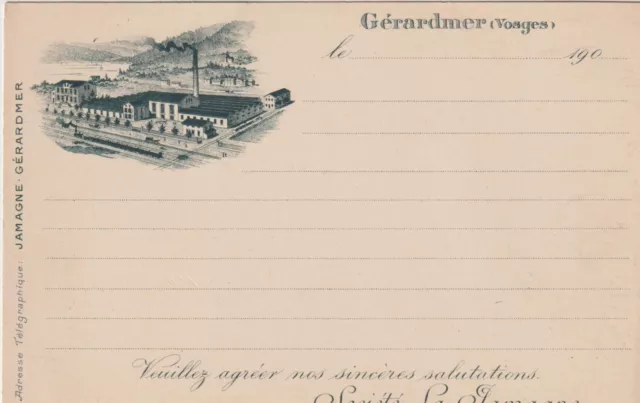 Gérardmer (Vosges)
le 190
Adresse Télégraphique: JAMAGNE-GÉRARDMER
Veuillez agréer nos sincères salutations.
Société La Jamagne